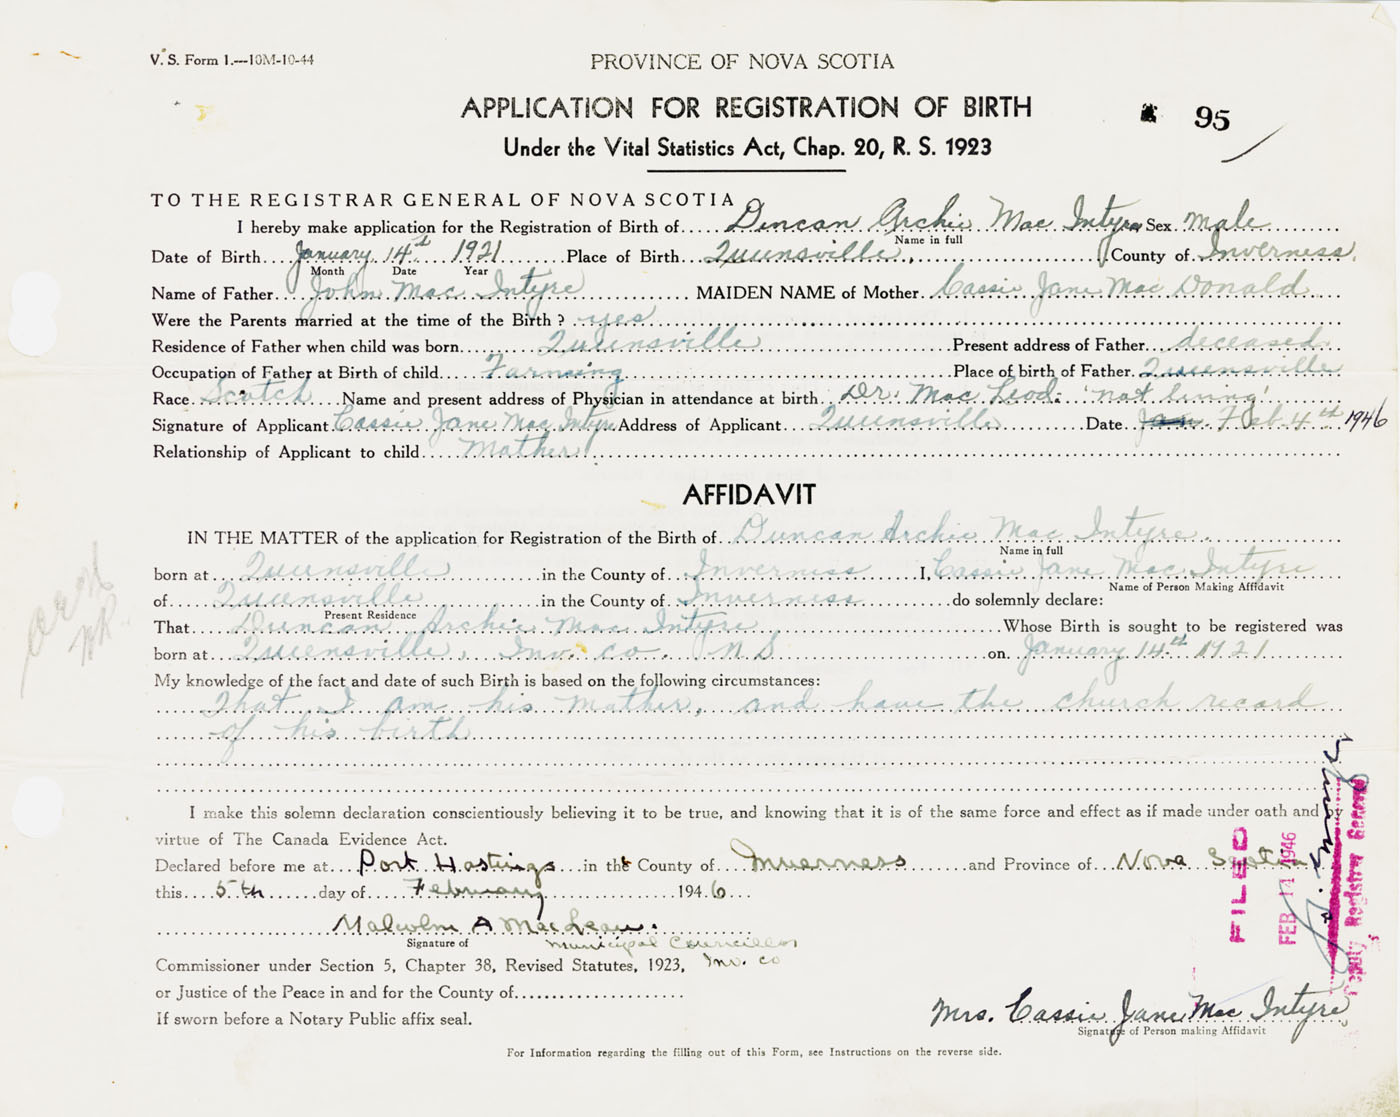 V. S. Form 1.—10M-10-44
PROVINCE OF NOVA SCOTIA
APPLICATION FOR REGISTRATION OF BIRTH
95
Under the Vital Statistics Act, Chap. 20, R. S. 1923
TO THE REGISTRAR GENERAL OF NOVA SCOTIA
I hereby make application for the Registration of Birth of Duncan Archie Mac Intyre Sex Male
Name in full
Date of Birth January 14th 1921 Place of Birth Queensville County of Inverness
Month Date Year
Name of Father John Mac Intyre MAIDEN NAME of Mother Cassie Jane Mac Donald
Were the Parents married at the time of the Birth? yes
Residence of Father when child was born Queensville Present address of Father deceased
Occupation of Father at Birth of child Farming Place of birth of Father Queensville
Race Scotch Name and present address of Physician in attendance at birth Dr. Mac Leod. 'not living'
Signature of Applicant Cassie Jane Mac Intyre Address of Applicant Queensville Date Jan Feb 4th 1946
Relationship of Applicant to child Mother
AFFIDAVIT
IN THE MATTER of the application for Registration of the Birth of Duncan Archie Mac Intyre
Name in full
born at Queensville in the County of Inverness I, Cassie Jane Mac Intyre
Name of Person Making Affidavit
of Queensville in the County of Inverness do solemnly declare:
Present Residence
That Duncan Archie Mac Intyre Whose Birth is sought to be registered was
born at Queensville, Inv. Co. N S on January 14th 1921
My knowledge of the fact and date of such Birth is based on the following circumstances:
That I am his mother, and have the church record
of his birth
I make this solemn declaration conscientiously believing it to be true, and knowing that it is of the same force and effect as if made under oath and by
virtue of The Canada Evidence Act.
Declared before me at Port Hastings in the County of Inverness and Province of Nova Scotia
this 5th day of February 1946
Malcolm A MacLean.
Signature of Municipal Councillor
Commissioner under Section 5, Chapter 38, Revised Statutes, 1923, Inv. Co
or Justice of the Peace in and for the County of
If sworn before a Notary Public affix seal.
FILED
FEB 14 1946
Deputy Registrar General
Mrs. Cassie Jane Mac Intyre
Signature of Person making Affidavit
For Information regarding the filling out of this Form, see Instructions on the reverse side.